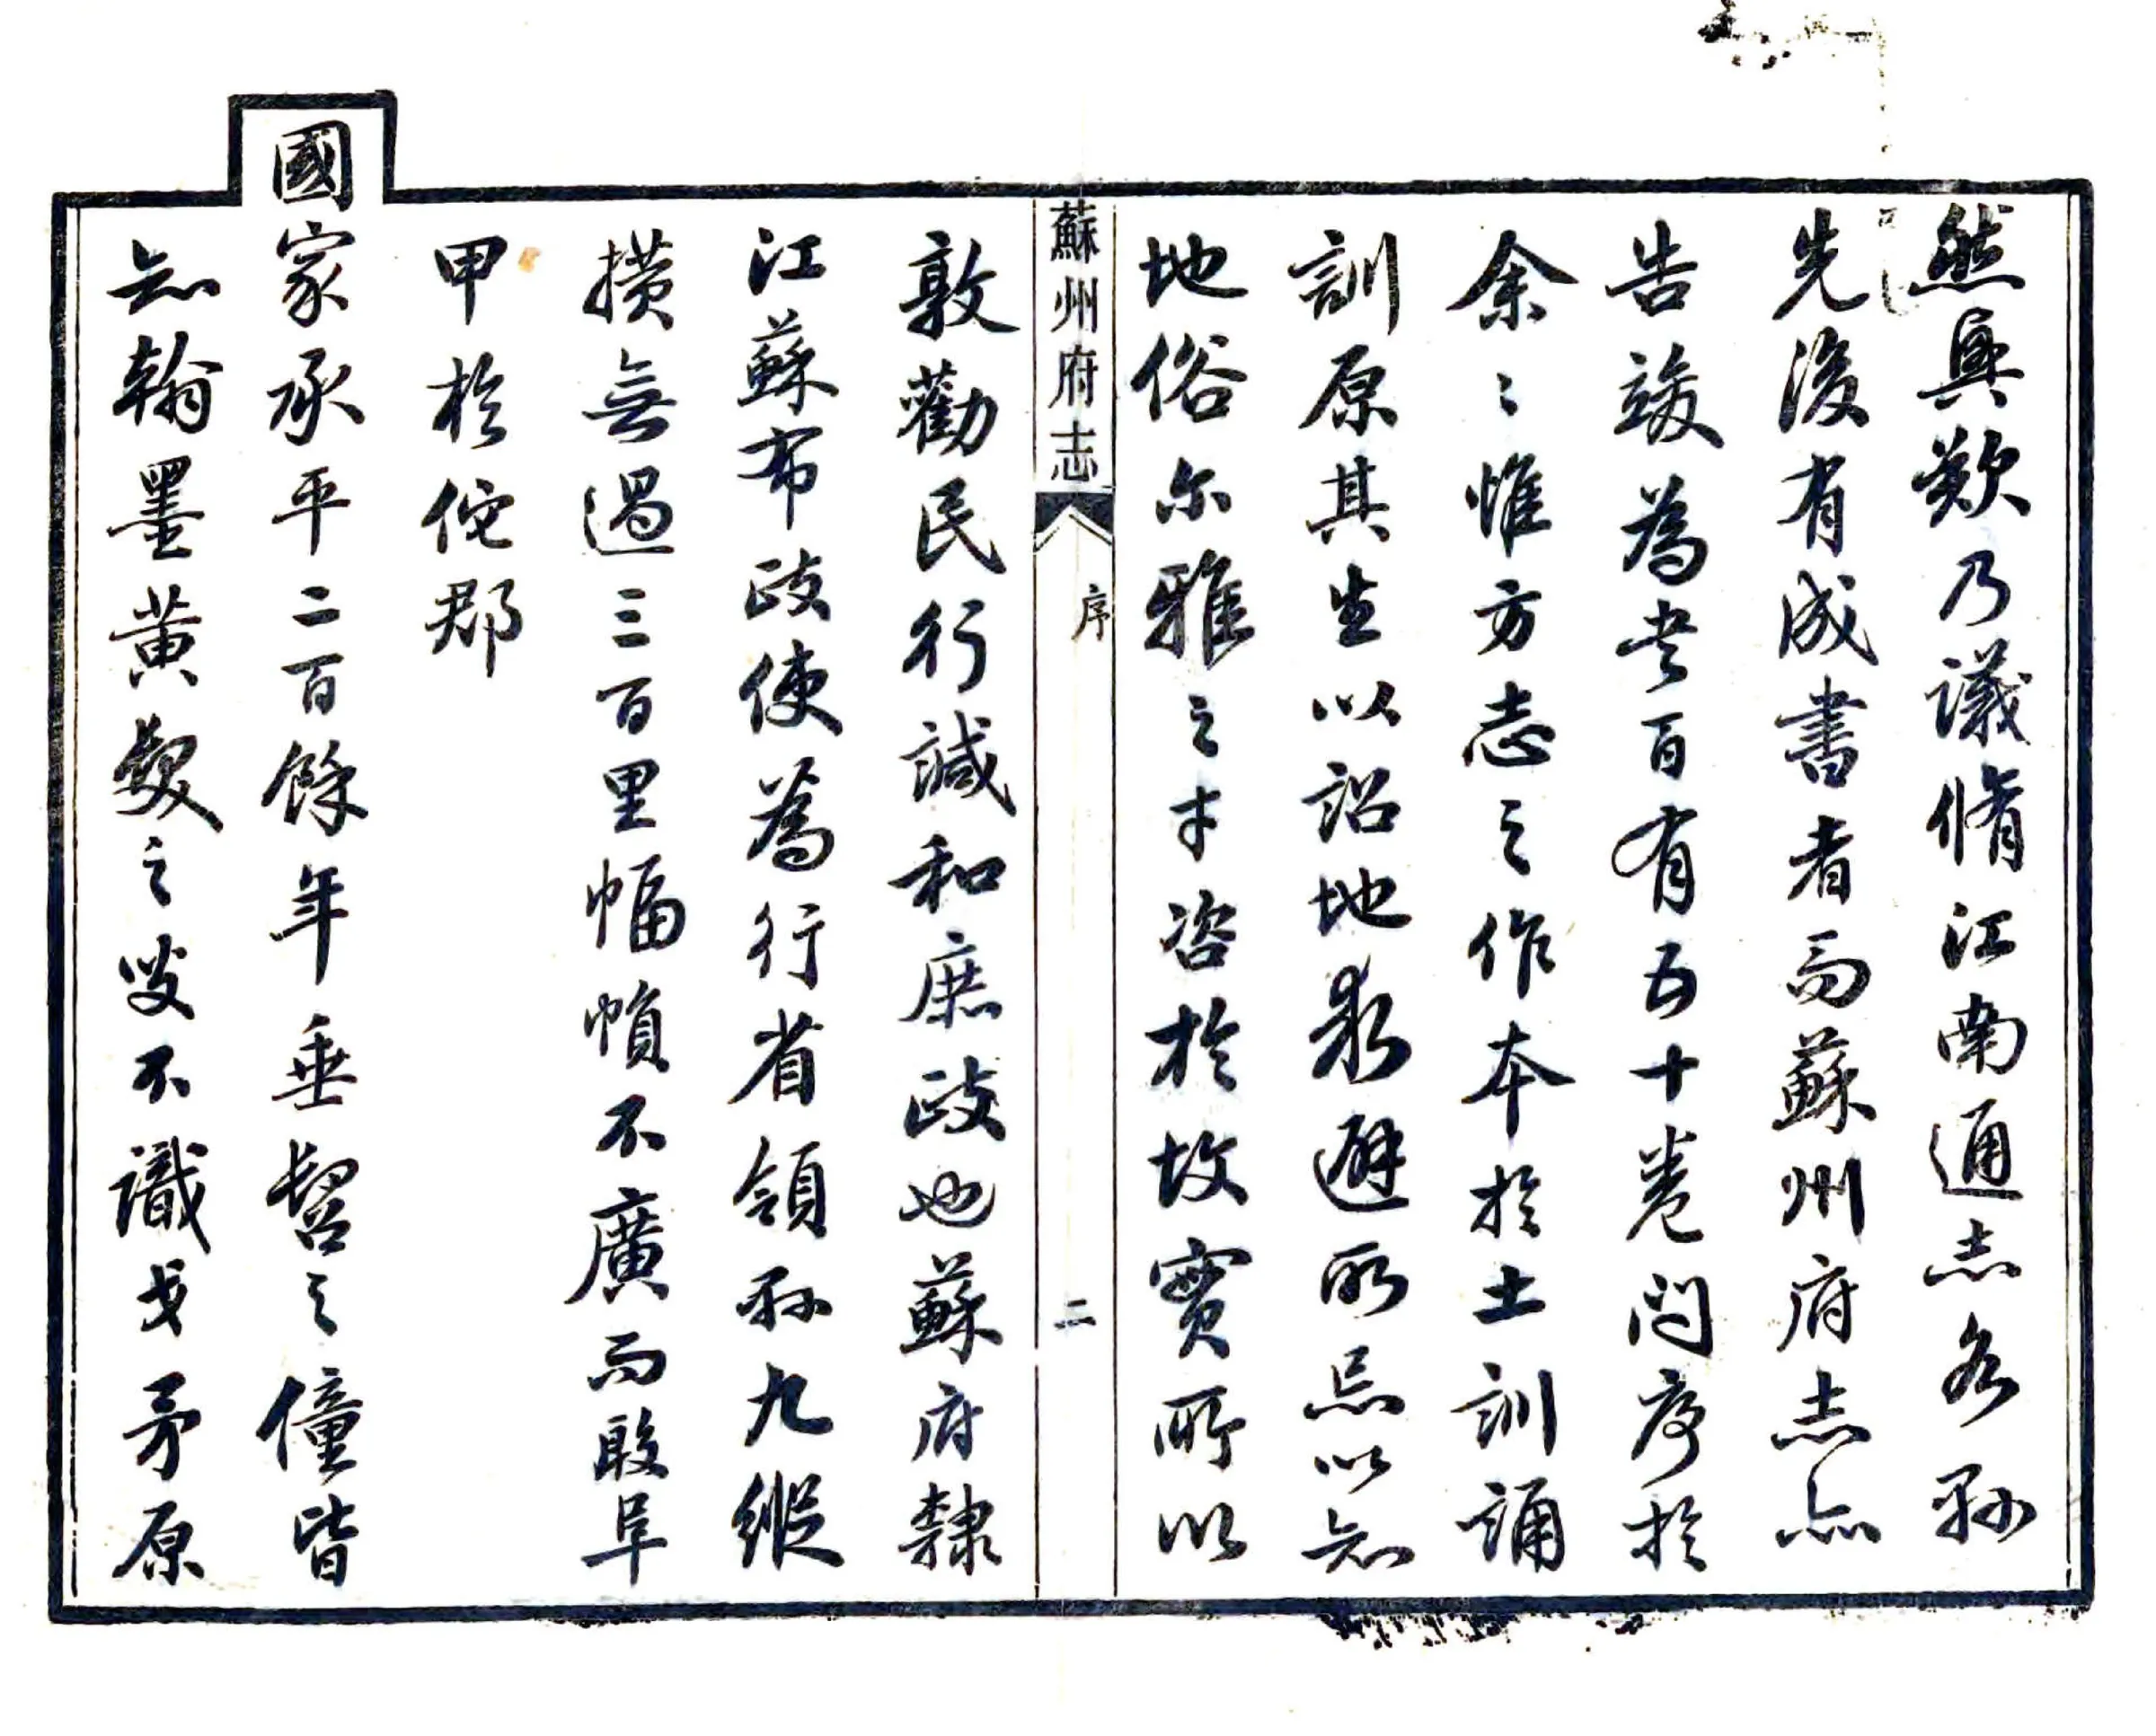 然興歎乃議脩江南通志各縣
先後有成書者而蘇州府志亦
告竣為書百有五十卷問序於
余〻惟方志之作本於土訓誦
訓原其生以詔地求避所忌以知
地俗尔雅之才咨於故實所以
蘇州府志
序
二
敦勸民行諴和庶政也蘇府隸
江蘇布政使為行省領縣九縱
橫無過三百里幅幀不廣而殷阜
甲於佗郡
國家承平二百餘年垂髫之僮皆
知翰墨黃髮之叟不識戈矛原